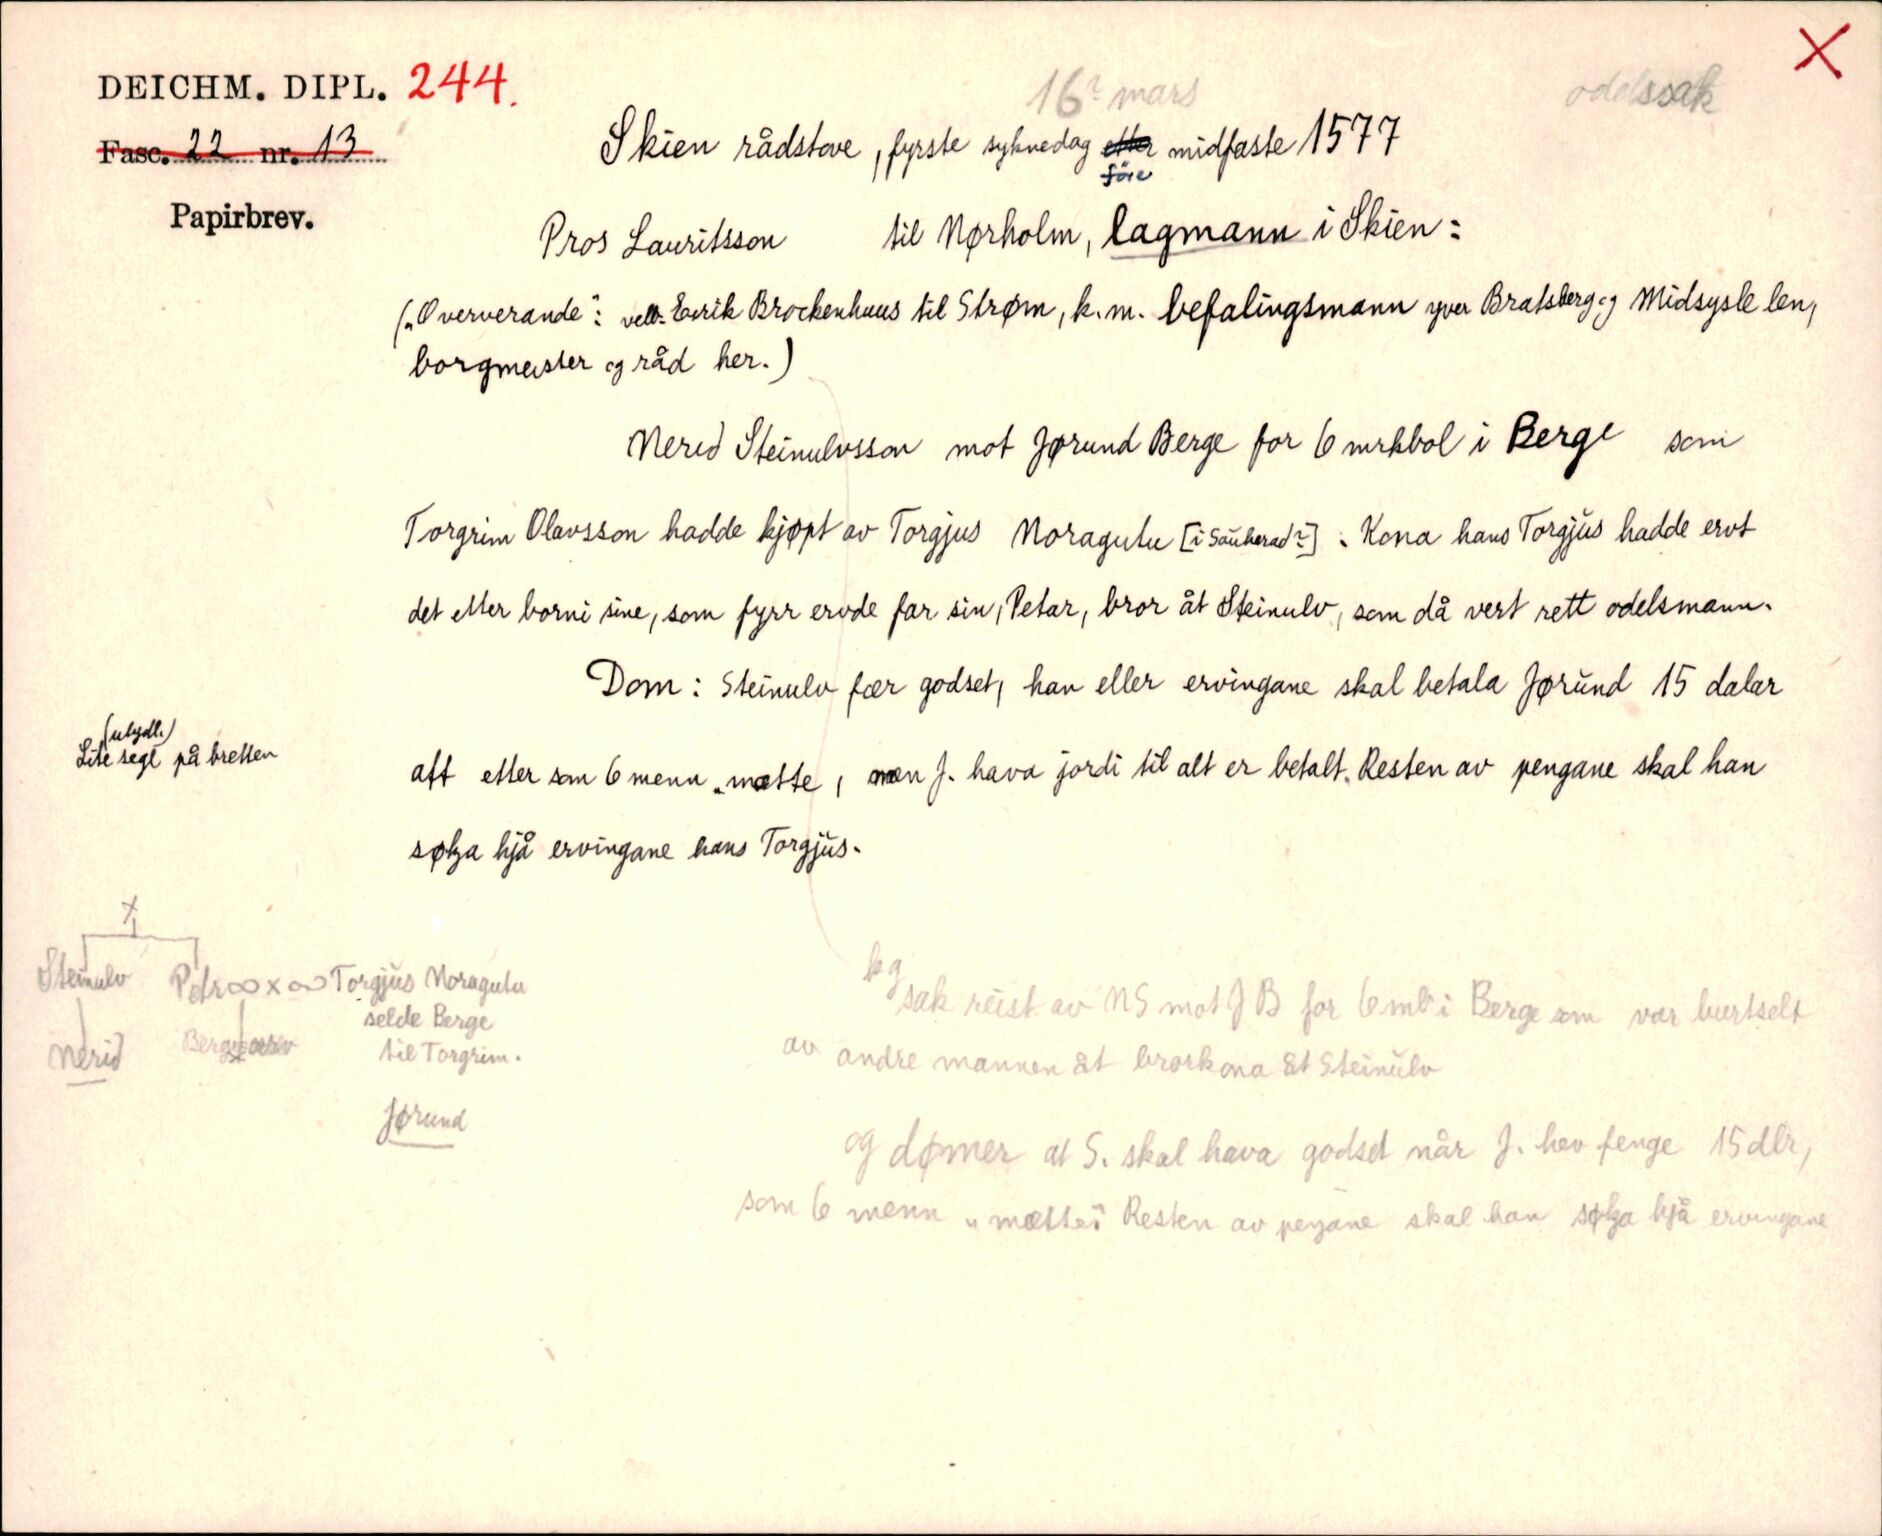 DEICHM. DIPL. 244.
Fasc. 22 nr. 13
Papirbrev.
16? mars
odelssak
Skien rådstove, fyrste syknedag etter midfaste 1577
före
Pros Lauritsson til Nørholm, lagmann i Skien:
("Ververande": velb. Eirik Brockenhuus til Strøm, k.m. befalingsmann yver Bratsberg og Midsysle len,
borgmeister og råd her.)
Nerid Steinulvsson mot Jørund Berge for 6 mrkbol i Berge som
Torgrim Olavsson hadde kjøpt av Torgjus Noragutu [i Sauherad?]. Kona hans Torgjus hadde ervt
det etter borni sine, som fyrr ervde far sin, Petar, bror åt Steinulv, som då vert rett odelsmann.
Dom: Steinulv fær godset, han eller ervingane skal betala Jørund 15 dalar
att etter som 6 menn "mætte, men J. hava jordi til alt er betalt. Resten av pengane skal han
søkja hjå ervingane hans Torgjus.
(utydl.)
Lite segl på bretten
x
Steinulv Petr ∞ x ∞ Torgjus Noragutu
selde Berge
til Torgrim.
Nerid
Berge
Jørund
kg
sak reist av NS mot J B for 6 mb i Berge som var burtselt
av andre mannen åt brorkona åt Steinulv
og dømer at S. skal hava godset når J. hev fenge 15 dlr,
som 6 menn "mætte". Resten av pengane skal han søkja hjå ervingane